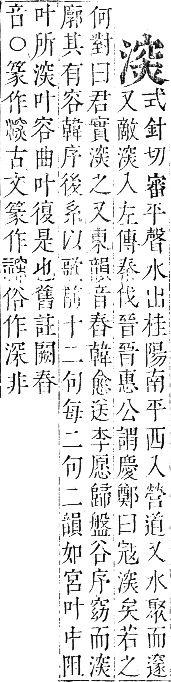 㴱式針切審平聲水出桂陽南平西入營道又水聚而邃
又敵㴱入左傳秦伐晉晉惠公謂慶鄭曰寇㴱矣若之
何對曰君實㴱之又東韻音舂韓愈送李愿歸盤谷序窈而㴱
廓其有容韓序後系以歌前十二句每二句二韻如宮叶中阻
叶所㴱叶容曲叶復是也舊註闕舂
音○篆作古文篆作俗作深非